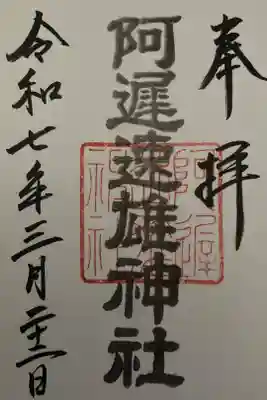 奉拝
阿遲速雄神社
令和七年三月二十二日